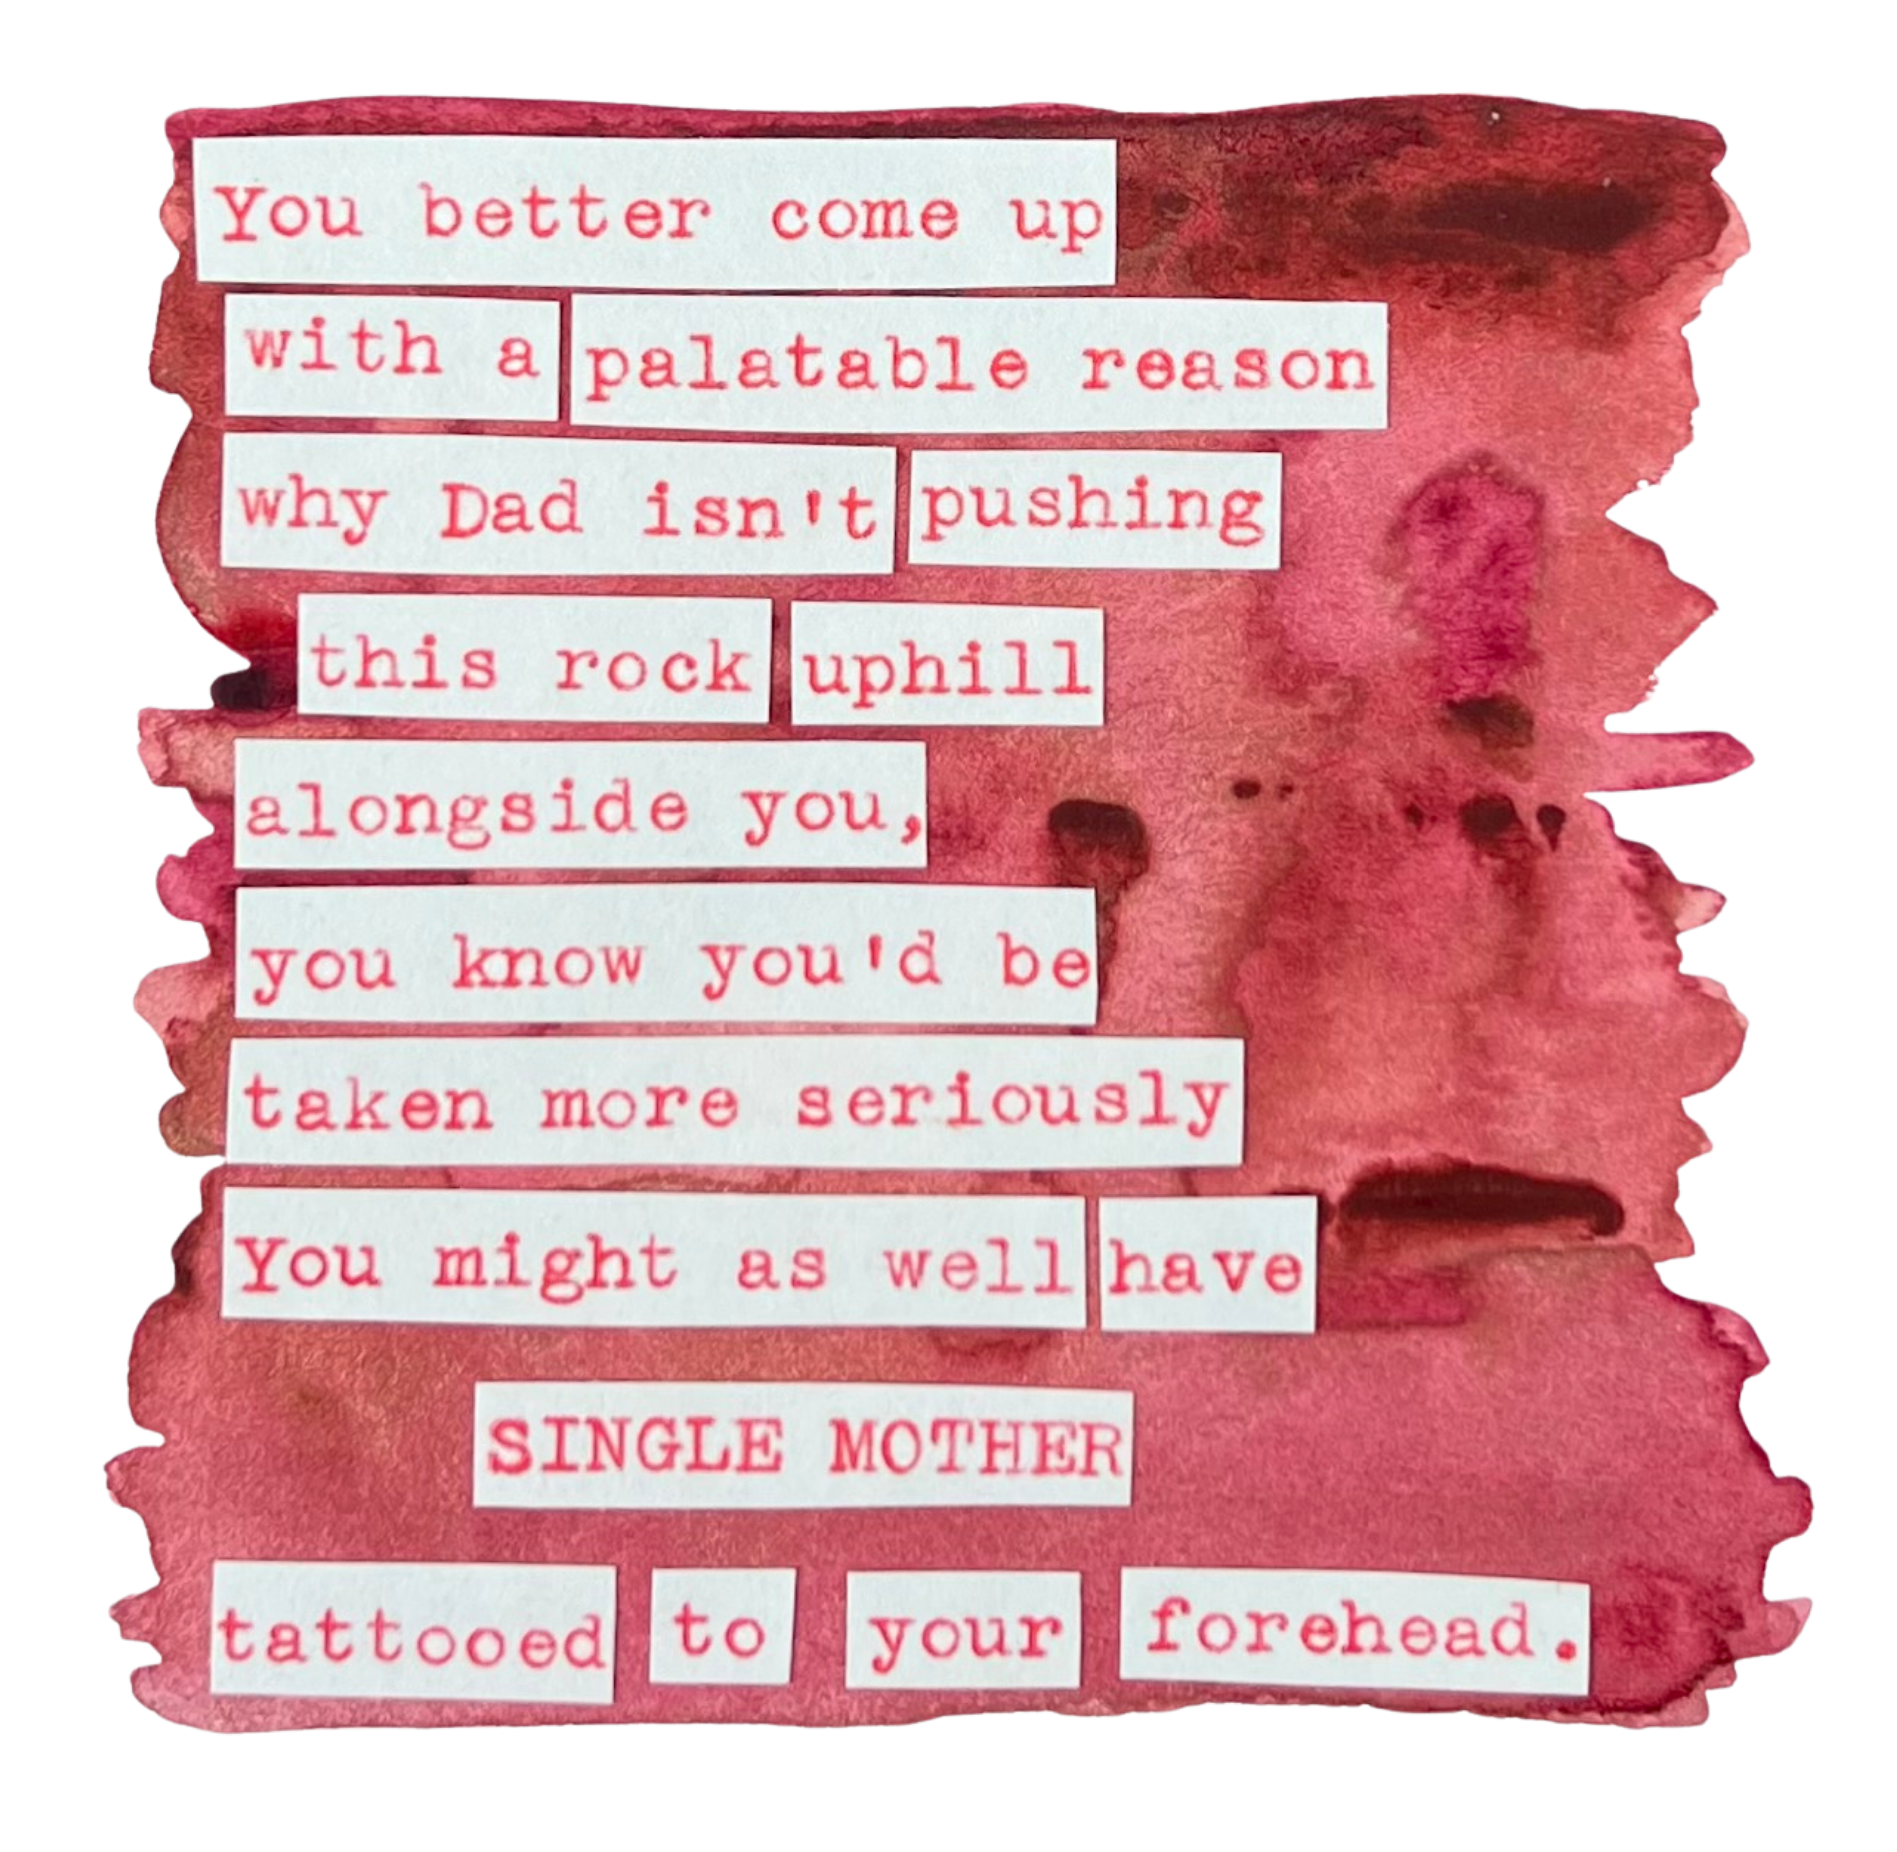 You better come up
with a palatable reason
why Dad isn't pushing
this rock uphill
alongside you,
you know you'd be
taken more seriously
You might as well have
SINGLE MOTHER
tattooed to your forehead.